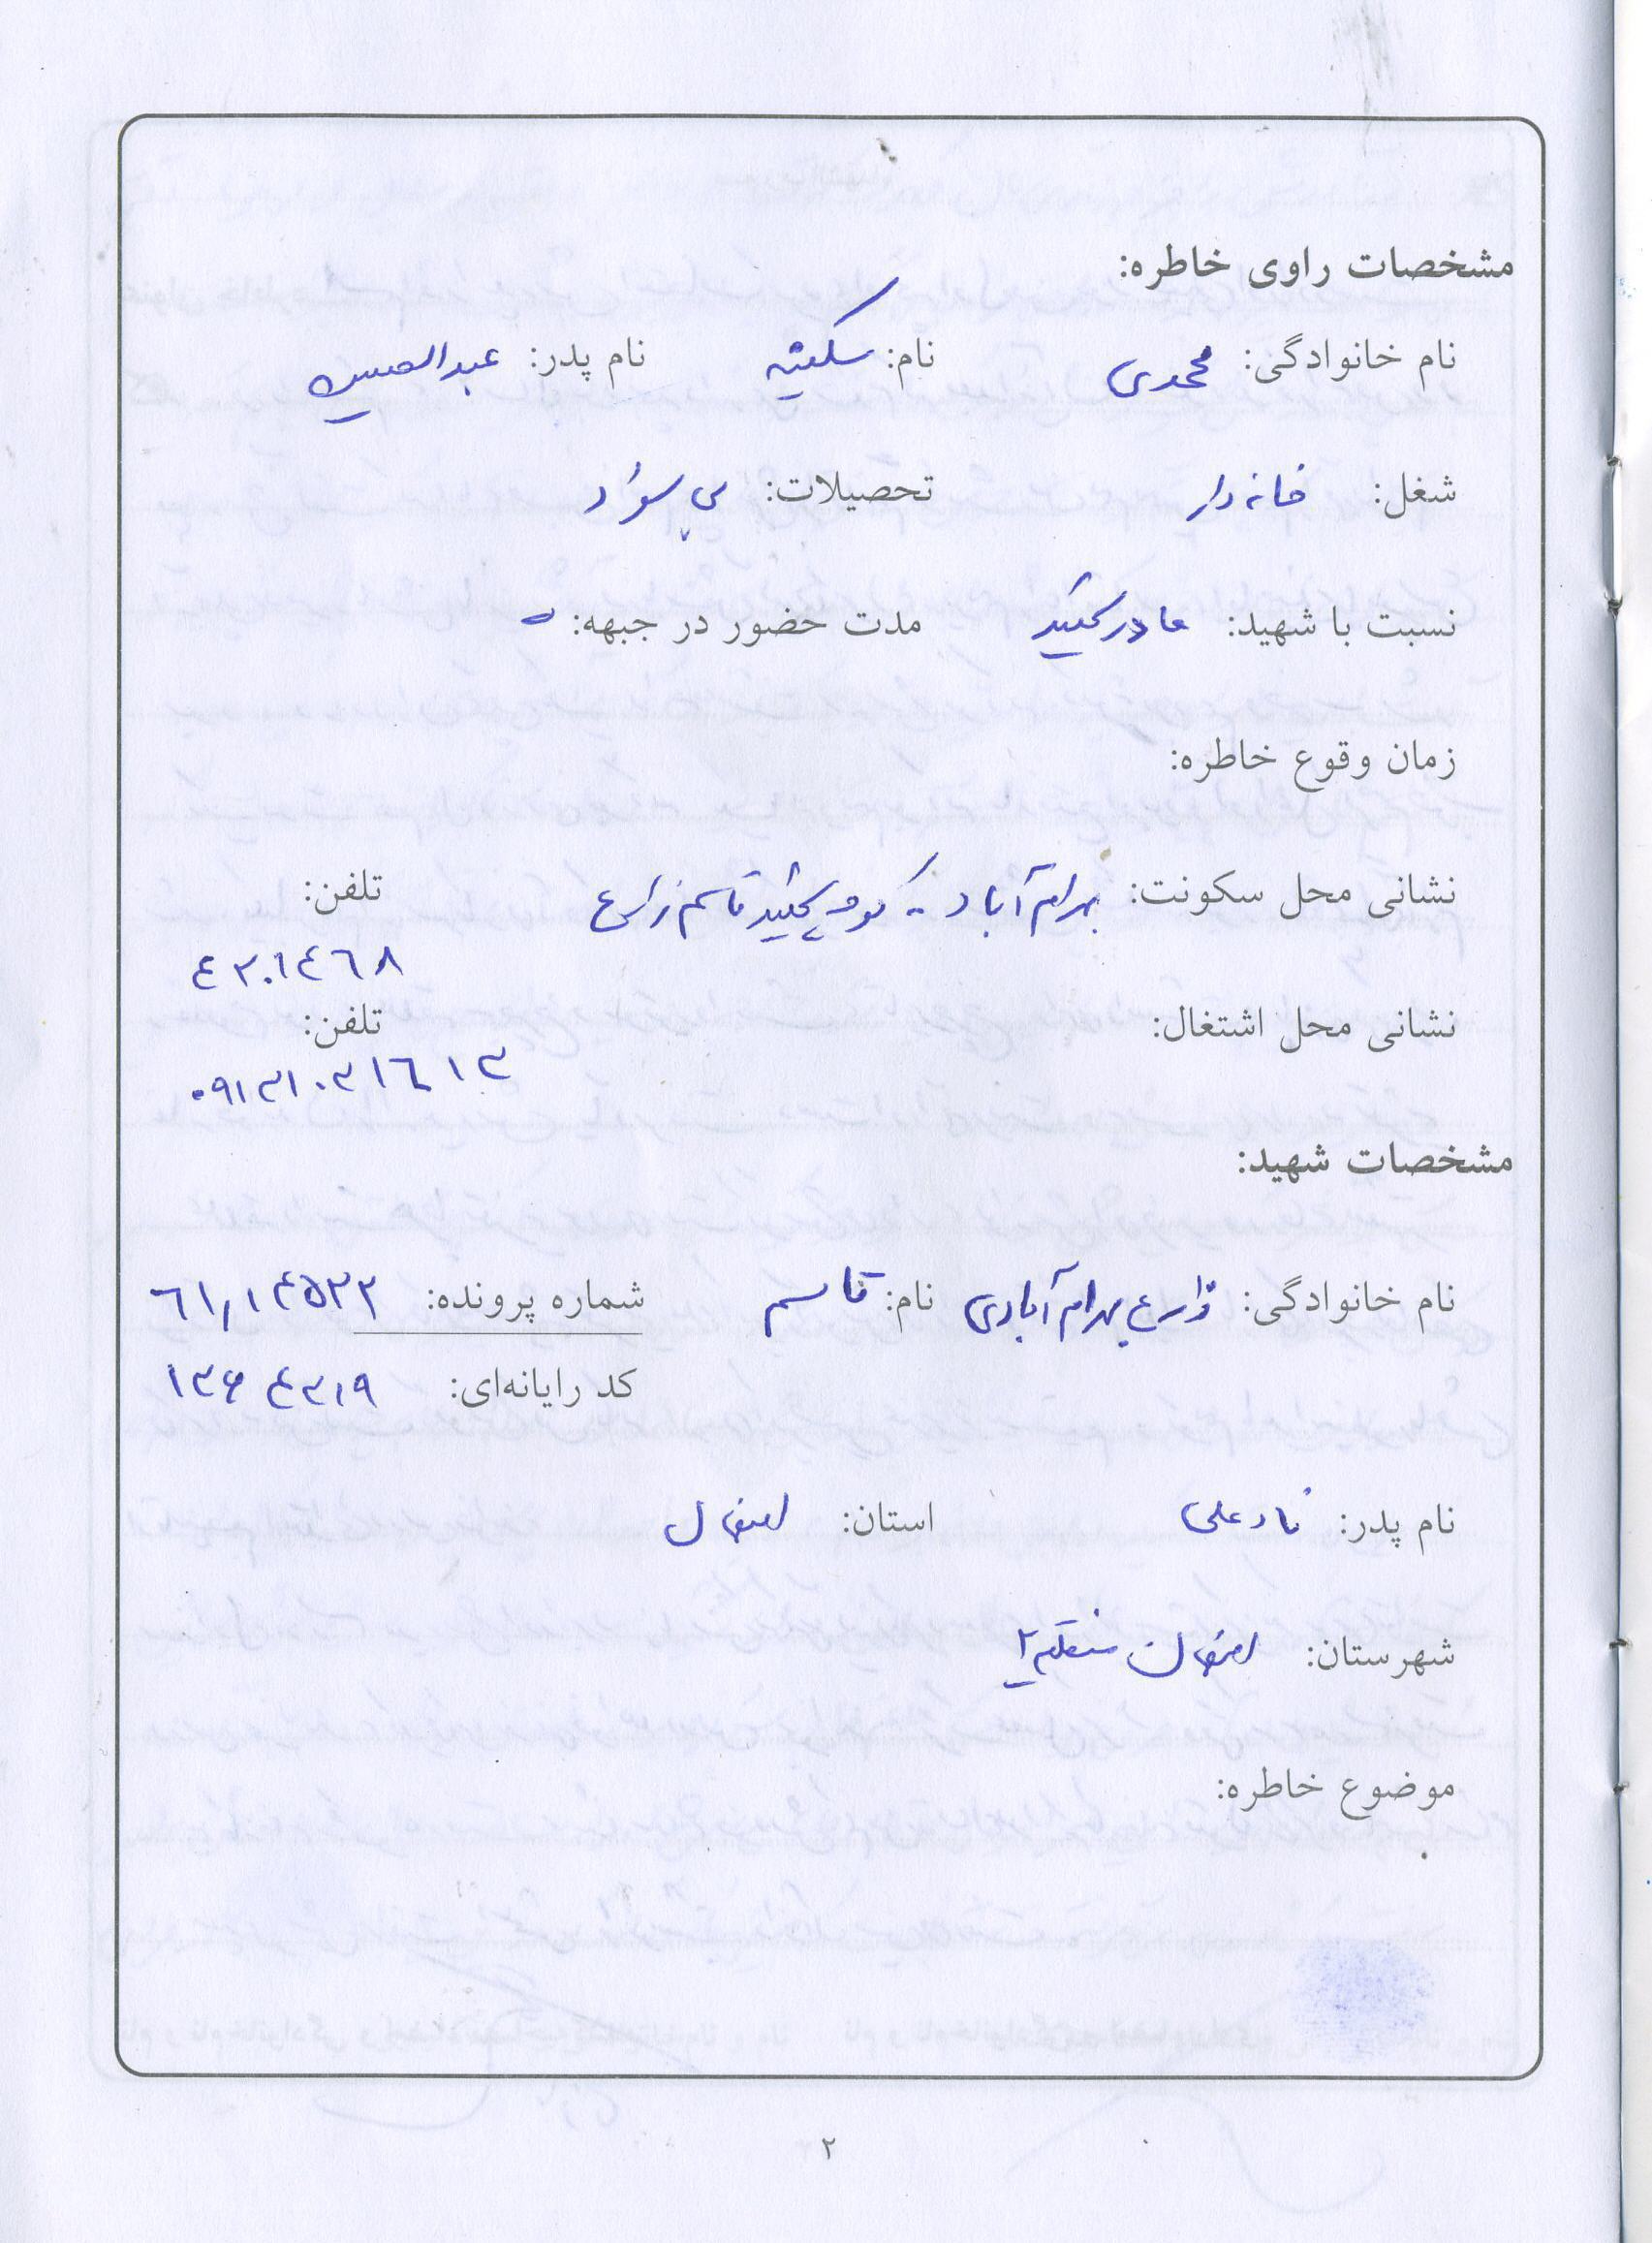 مشخصات راوی خاطره:
نام خانوادگی: محمدی نام: سکینه نام پدر: عبدالحسین
شغل: خانه دار تحصیلات: بی سواد
نسبت با شهید: مادر شهید مدت حضور در جبهه: -
زمان وقوع خاطره:
نشانی محل سکونت: بهرام آباد - کوچه شهید قاسم زارع تلفن:
٤٢٠١٤٦٨
نشانی محل اشتغال: تلفن:
٠٩١٣١٠٣١٦١٣
مشخصات شهید:
نام خانوادگی: زارع بهرام آبادی نام: قاسم شماره پرونده: ٦١/١۴۵٢٢
کد رایانه‌ای: ١٣۶٤٣١٩
نام پدر: نادعلی استان: اصفهان
شهرستان: اصفهان منطقه ٢
موضوع خاطره:
٢